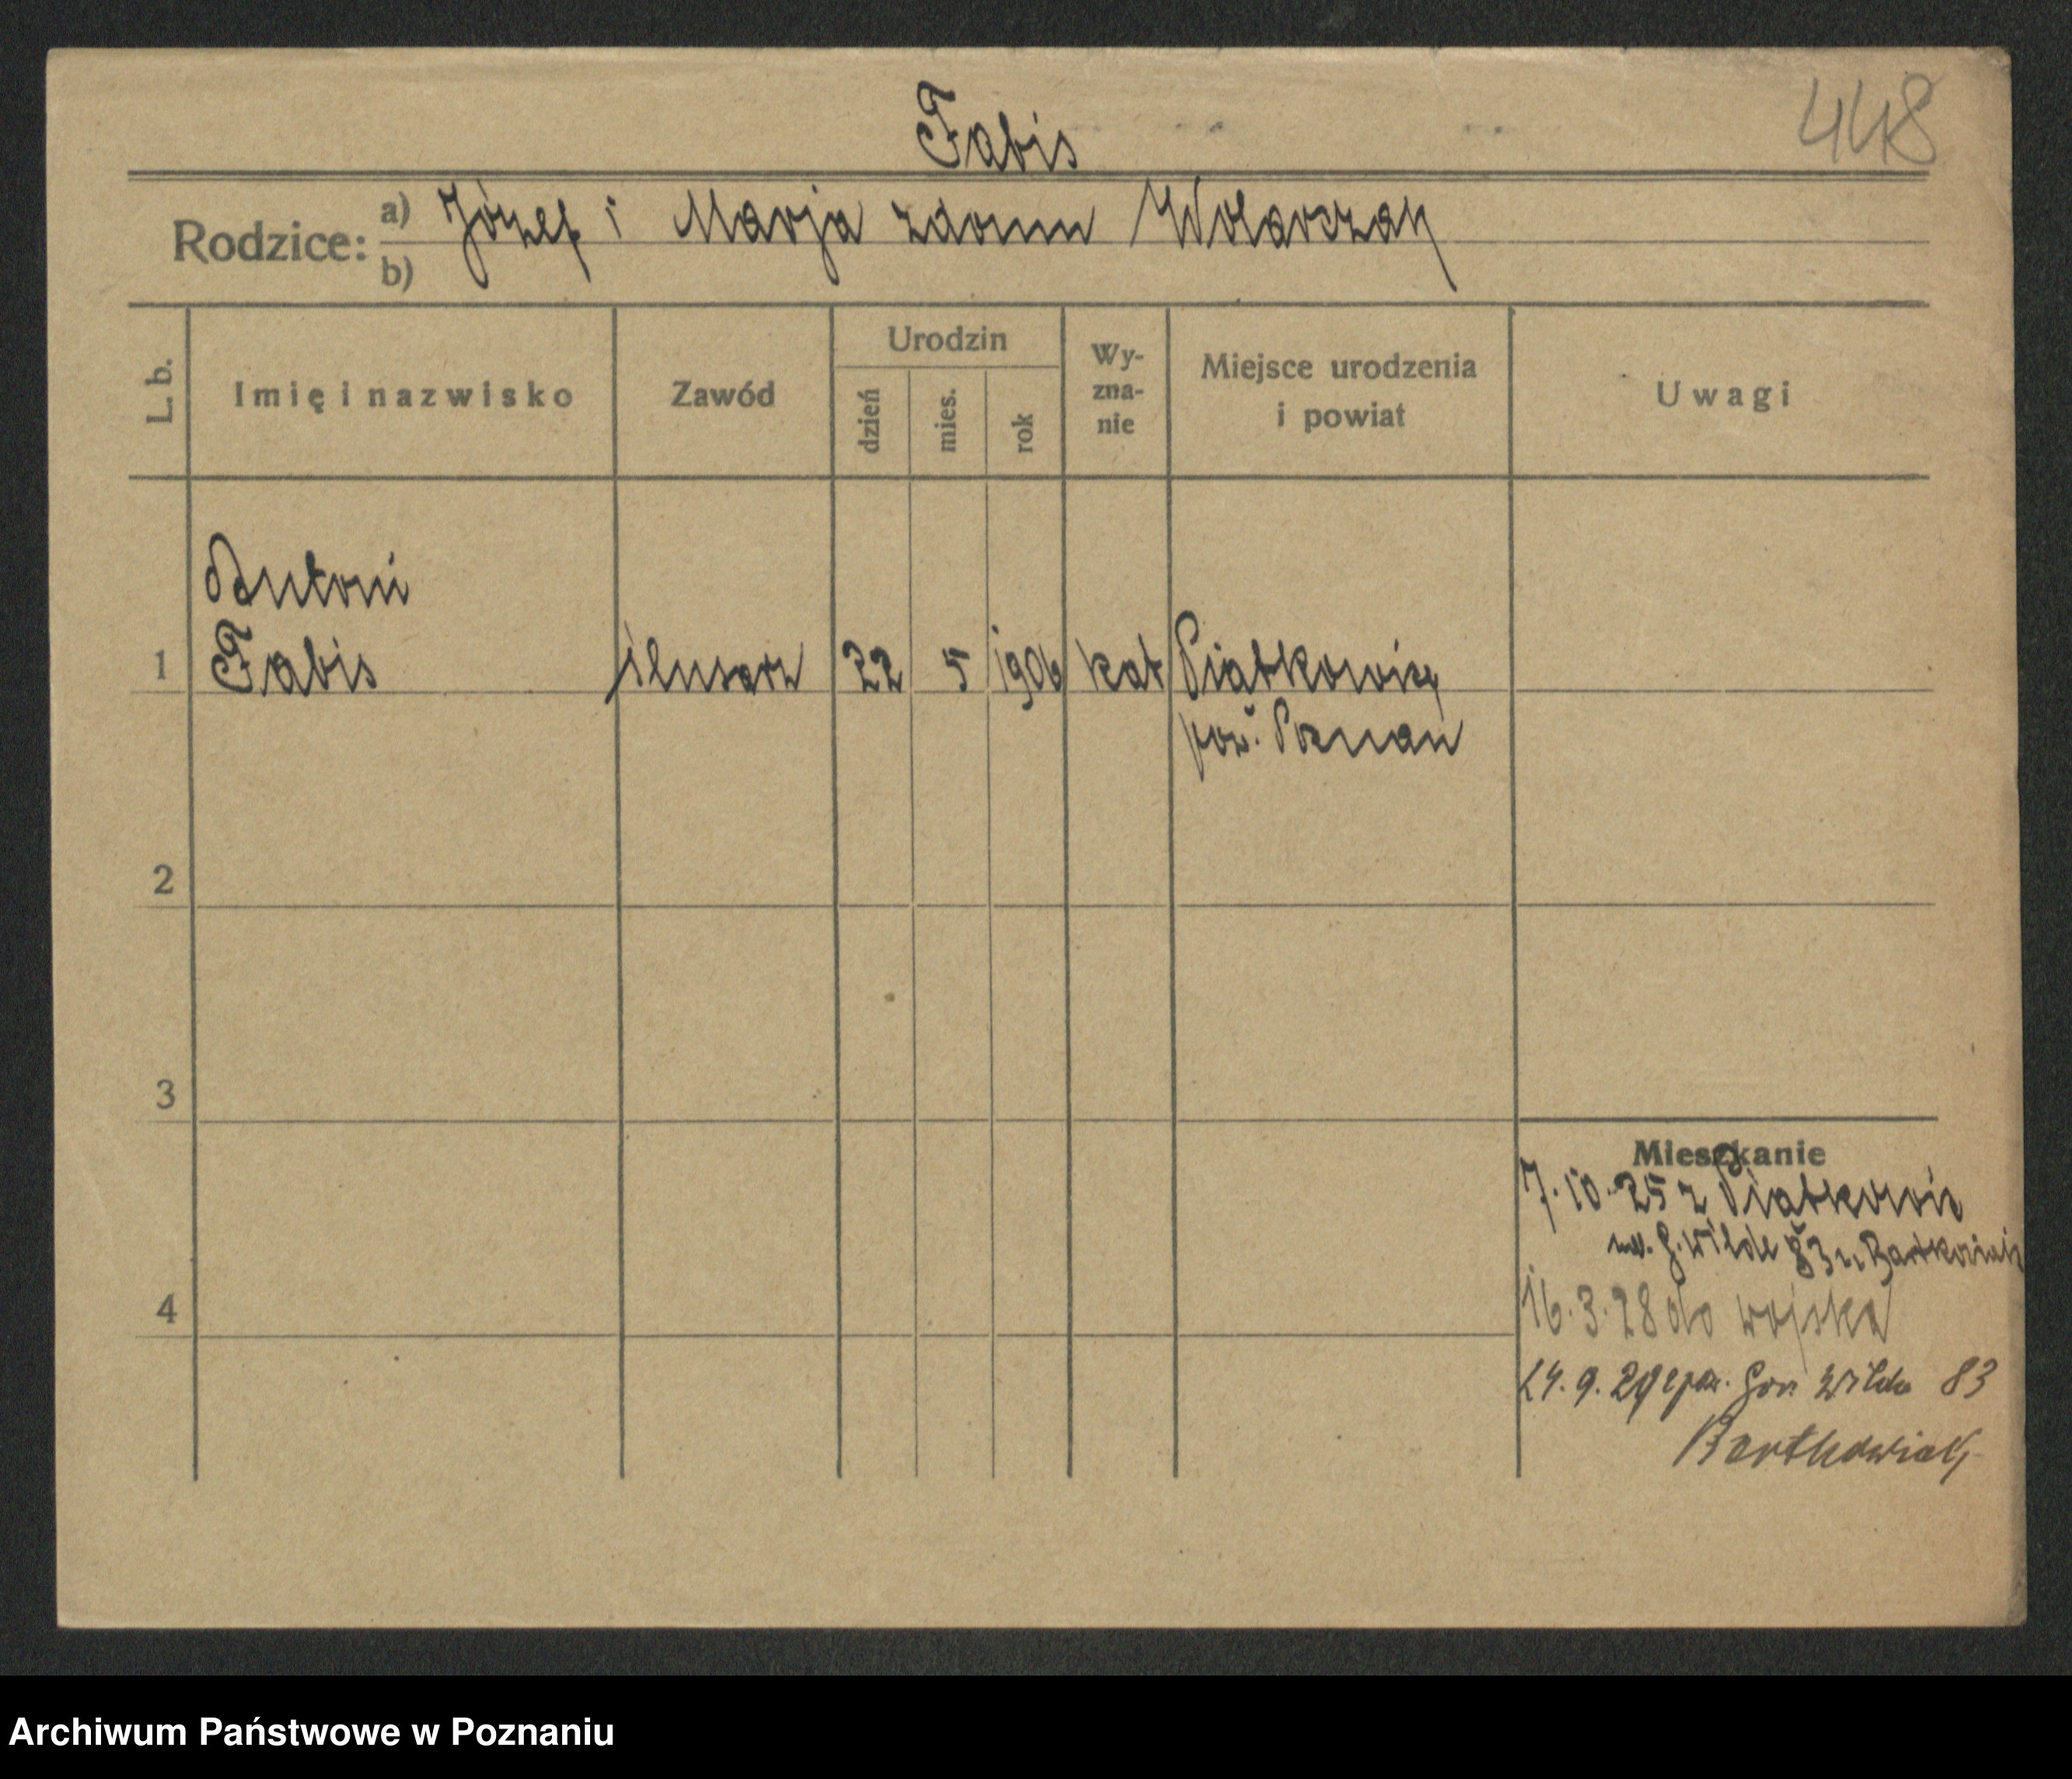 Fabis
448
Rodzice: a) Józef i Marja zdomu Wolarczak
b)
L. b.
Imię i nazwisko
Zawód
Urodzin
dzień
mies.
rok
Wy-
zna-
nie
Miejsce urodzenia
i powiat
Uwagi
Antoni
1 Fabis ślusarz 22 5 1906 kat Piątkowie
pow. Poznań
2
3
Mieszkanie
7.10.25 z Piątkowie
G. Wilde 83 u. Bartkowiak
4
16.3.28 do wojska
24.9.29 Gór. Wilda 83
Bartkowiak
Archiwum Państwowe w Poznaniu